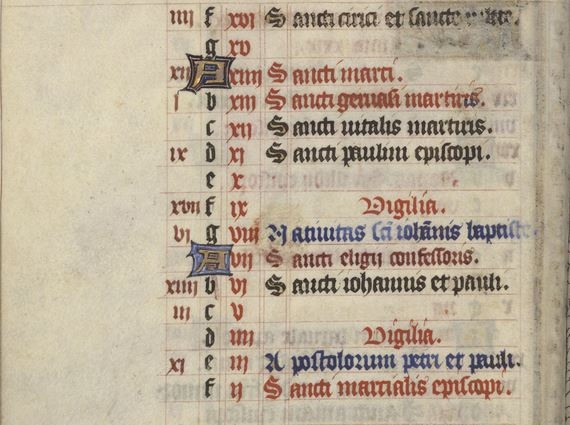 iiij f xvi Sancti cirici et sancte
g xv
xii A xiiii Sancti marci.
i b xiii Sancti geruasii martiris.
c xii Sancti uitalis martiris.
ix d xi Sancti paulini episcopi.
e x
xvii f ix Vigilia.
vi g viii Natiuitas sci iohannis baptiste.
A vii Sancti eligii confessoris.
xiiii b vi Sancti iohannis et pauli.
iii c v
d iiii Vigilia.
xi e iii Apostolorum petri et pauli.
f ii Sancti martialis episcopi.